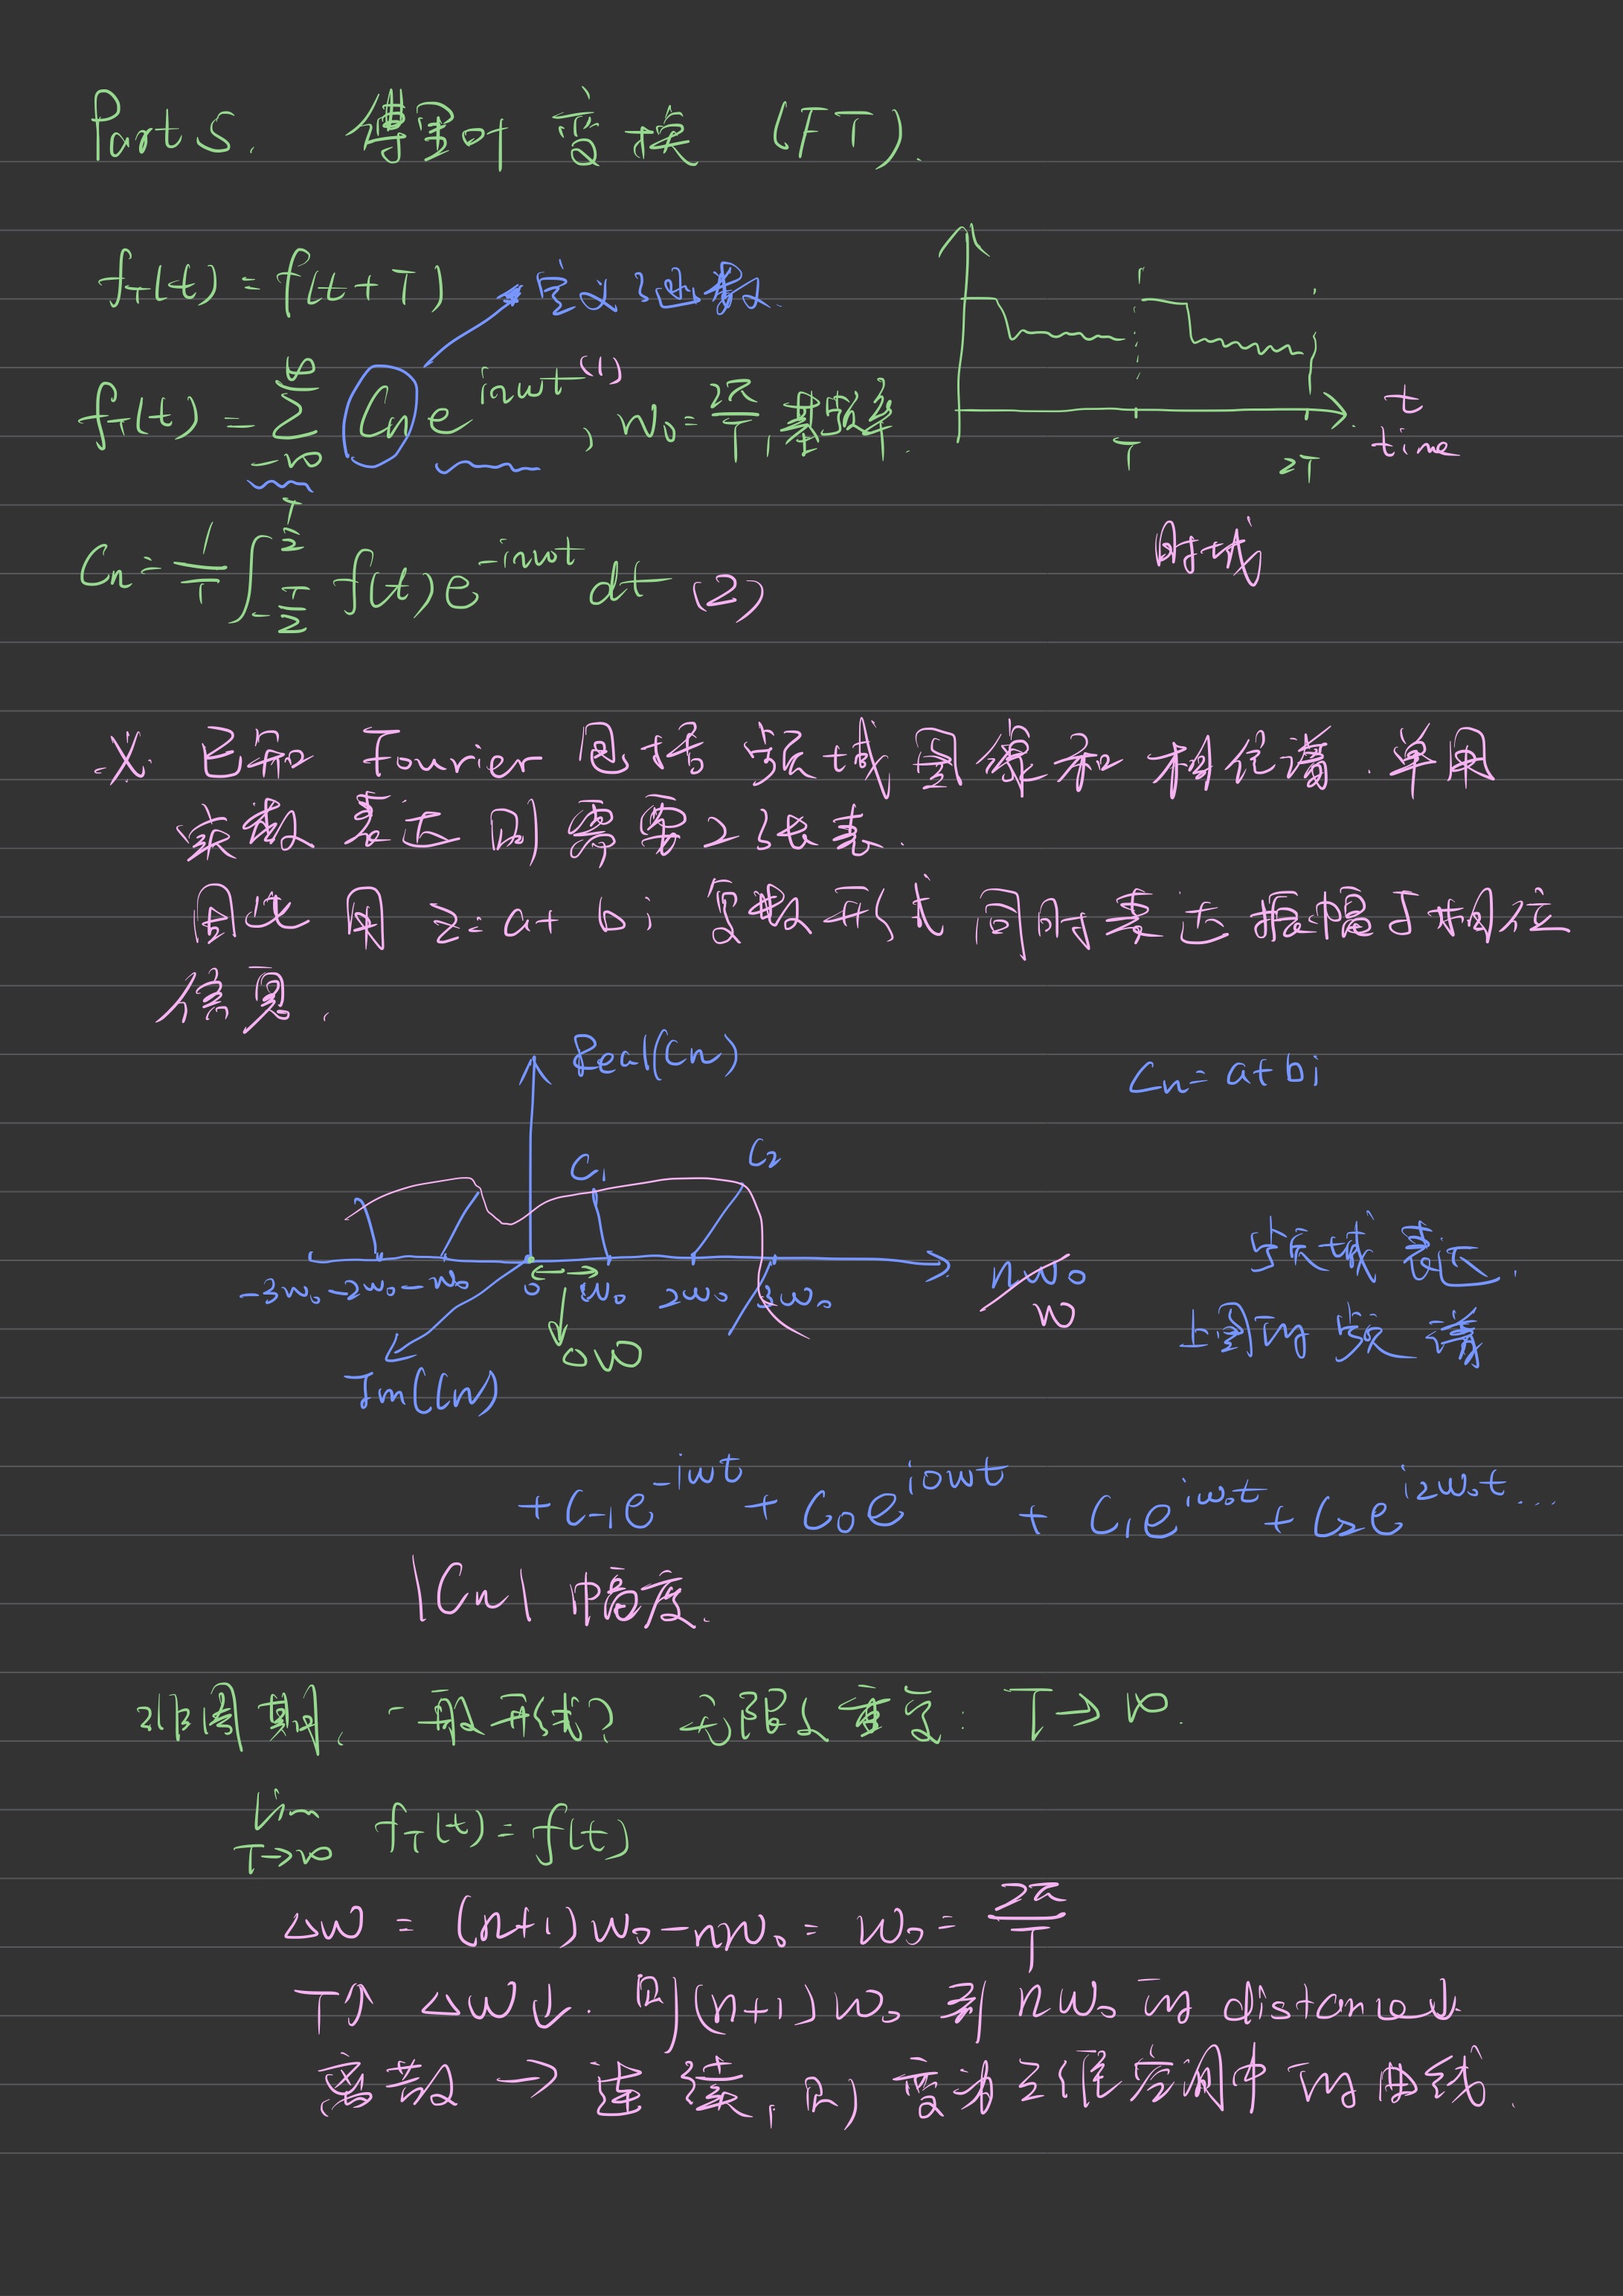 Part 5. 傅里叶变换 (FT).
f_T(t) = f(t+T)
定义过来
f_T(t) = ∑_{-∞}^{∞} C_n e^{inwt} (1), w_0 = 2π/T, 基频率.
T 2T t time
C_n = 1/T ∫_{-T/2}^{T/2} f(t) e^{-inwt} dt (2)
时域
※. 已知 Fourier 包括 频域图像和相位谱. 单用
实数表达则需要2张表.
因此用 z = a + bi 复数形式同时表达振幅与相位
信息.
Real(Cn) Cn = a+bi
C1 C2
-3w0 -2w0 -w0 0 w0 2w0 3w0 nw0 w
△w
Im(Cn)
频域表达.
上图的频谱
+ C-1 e^{-iwt} + C0 e^{i0wt} + C1 e^{iw0t} + C2 e^{i2w0t} ...
|Cn| 幅度.
非周期, 一般形式? 无限重复: T→∞.
lim_{T→∞} f_T(t) = f(t)
△w = (n+1)w0 - nw0 = w0 = 2π/T
T↑ △w↓. 则(n+1)w0 到 nw0 的 distance↓.
离散 → 连续, 则变为三维空间中的曲线.